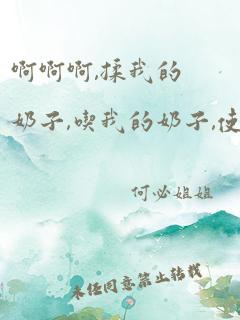 啊啊啊,揉我的
奶子,喫我的奶子,使
何必姐姐
未经同意禁止转载